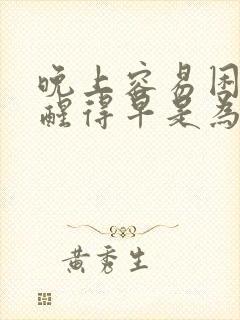 晚上容易困
醒得早是為
黃秀生